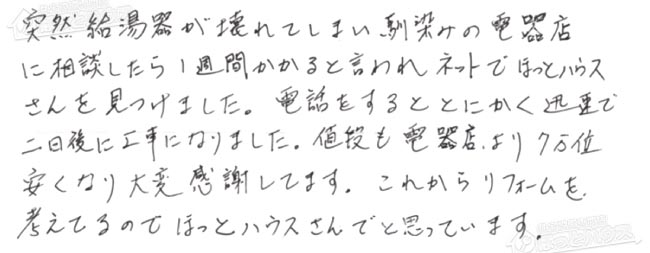 突然給湯器が壊れてしまい馴染みの電器店
に相談したら1週間かかると言われネットでほっとハウス
さんを見つけました。電話をするととにかく迅速で
二日後に工事になりました。値段も電器店より7万位
安くなり大変感謝してます。これからリフォームを
考えてるのでほっとハウスさんでと思っています。